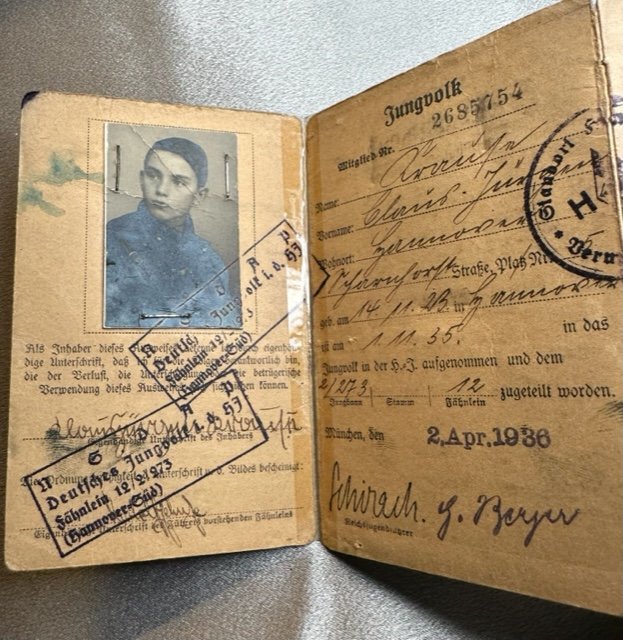 Als Inhaber dieses Ausweises erkenne ich durch eigenhän-
dige Unterschrift, daß ich
die der Verlust, die betrügerische
Verwendung dieses Ausweises nach sich ziehen können.
Claus Jürgen Krause
Eigenhändige Unterschrift des Inhabers
Die Ordnungsmäßigkeit der Unterschrift u. d. Bildes bescheinigt:
Eigenhändige Unterschrift des Führers vorstehenden Fähnleins
N S D A P
Deutsches Jungvolk i. d. HJ
Fähnlein 12/2/73
(Hannover-Süd)
N S D A P
Deutsches Jungvolk i. d. HJ
Fähnlein 12/2/73
(Hannover-Süd)
Jungvolk
Mitglied Nr. 2685754
Name: Krause
Vorname: Claus-Jürgen
Wohnort: Hannover
Scharnhorst Straße, Platz Nr.
geb. am 14.11.23 in Hannover
ist am 1.11.35. in das
Jungvolk in der H.-J. aufgenommen und dem
2/273 12 zugeteilt worden.
Jungbann Stamm Fähnlein
München, den 2. Apr. 1936
Schirach. G. Berger
Reichsjugendführer
Standort
H